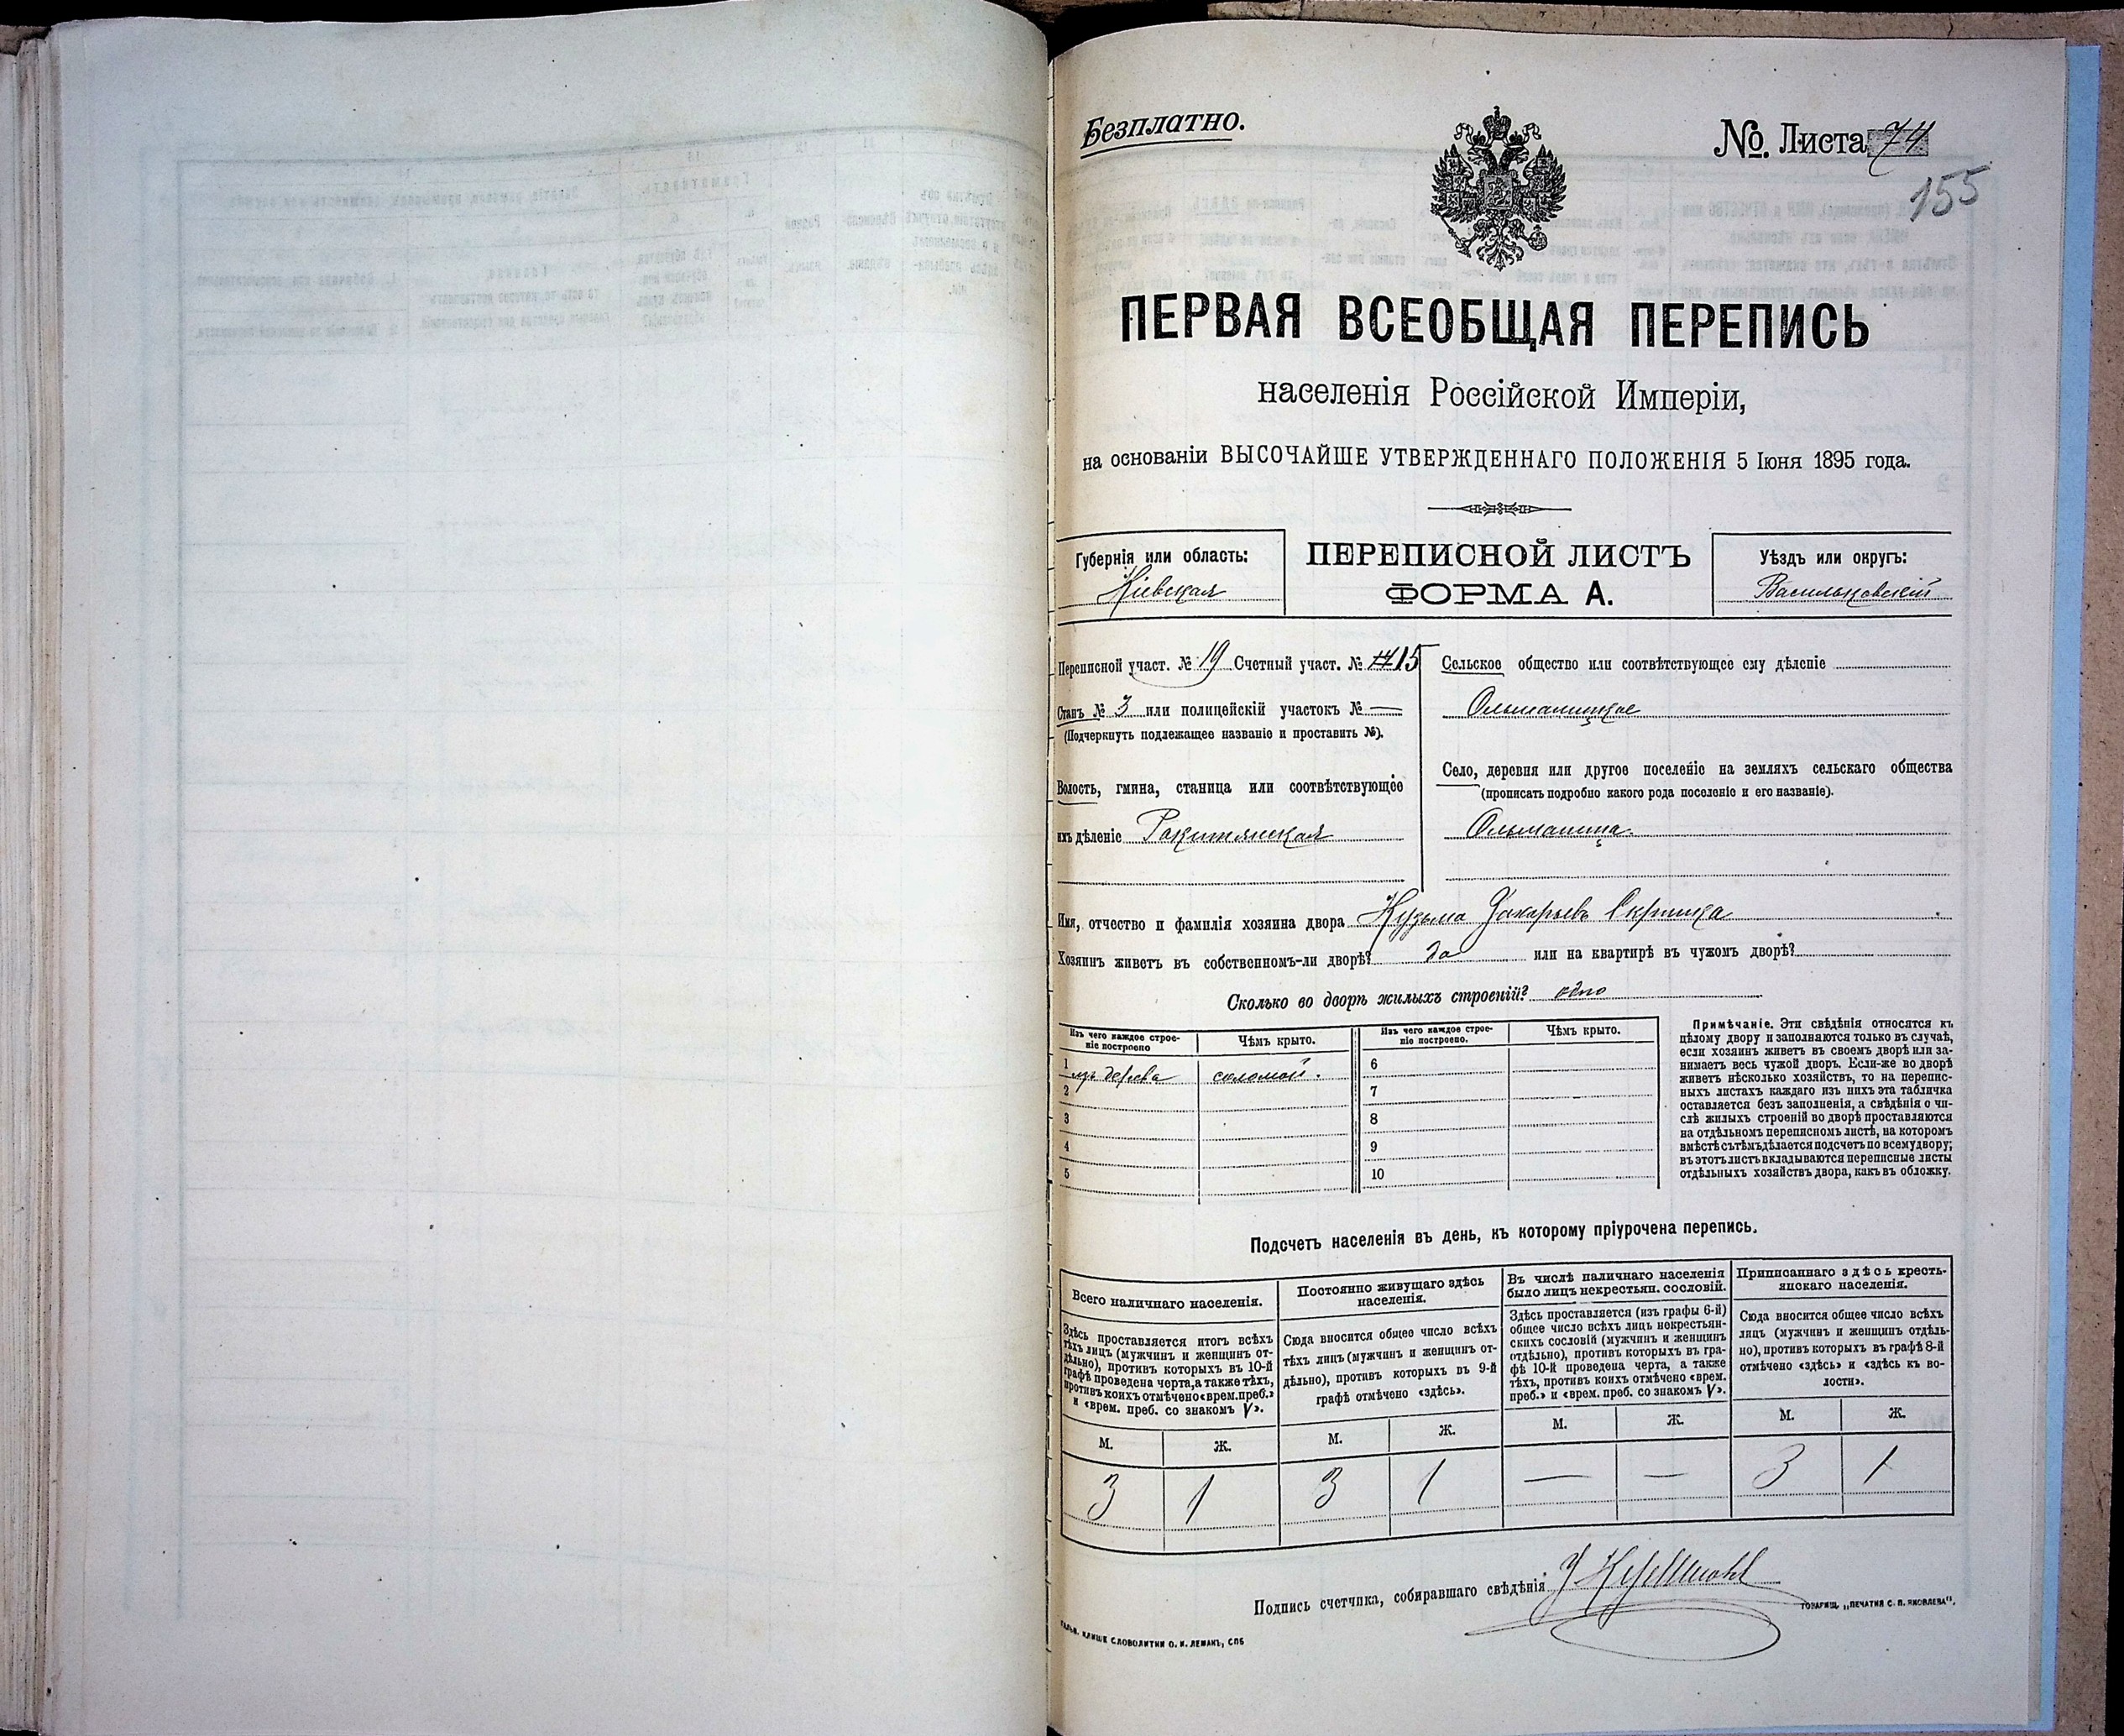 Безплатно.
№ Листа 74
155
ПЕРВАЯ ВСЕОБЩАЯ ПЕРЕПИСЬ
населенія Россійской Имперіи,
на основаніи ВЫСОЧАЙШЕ УТВЕРЖДЕННАГО ПОЛОЖЕНІЯ 5 Іюня 1895 года.
Губернія или область:
Кіевская
ПЕРЕПИСНОЙ ЛИСТЪ
ФОРМА А.
Уѣздъ или округъ:
Васильковскій
Переписной участ. № 19 Счетный участ. № 15
Станъ № 3 или полицейскій участокъ № —
(Подчеркнуть подлежащее названіе и проставить №).
Волость, гмина, станица или соотвѣтствующее
ихъ дѣленіе Ракитянская
Сельское общество или соотвѣтствующее ему дѣленіе
Ольшаницкое
Село, деревня или другое поселеніе на земляхъ сельскаго общества
(прописать подробно какого рода поселеніе и его названіе).
Ольшаница.
Имя, отчество и фамилія хозяина двора Кузьма Захарьевъ Скрипка
Хозяинъ живетъ въ собственномъ-ли дворѣ? да или на квартирѣ въ чужомъ дворѣ?
Сколько во дворѣ жилыхъ строеній? одно
Изъ чего каждое строе-
ніе построено
Чѣмъ крыто.
Изъ чего каждое строе-
ніе построено.
Чѣмъ крыто.
1 изъ дерева соломой. 6
2 7
3 8
4 9
5 10
Примѣчаніе. Эти свѣдѣнія относятся къ
цѣлому двору и заполняются только въ случаѣ,
если хозяинъ живетъ въ своемъ дворѣ или за-
нимаетъ весь чужой дворъ. Если-же во дворѣ
живетъ нѣсколько хозяйствъ, то на перепис-
ныхъ листахъ каждаго изъ нихъ эта табличка
оставляется безъ заполненія, а свѣдѣнія о чи-
слѣ жилыхъ строеній во дворѣ проставляются
на отдѣльномъ переписномъ листѣ, на которомъ
вмѣстѣ съ тѣмъ дѣлается подсчетъ по всему двору;
въ этотъ листъ вкладываются переписные листы
отдѣльныхъ хозяйствъ двора, какъ въ обложку.
Подсчетъ населенія въ день, къ которому пріурочена перепись.
Всего наличнаго населенія.
Здѣсь проставляется итогъ всѣхъ
тѣхъ лицъ (мужчинъ и женщинъ от-
дѣльно), противъ которыхъ въ 10-й
графѣ проведена черта, а также тѣхъ,
противъ коихъ отмѣчено «врем. преб.»
и «врем. преб. со знакомъ V».
Постоянно живущаго здѣсь
населенія.
Сюда вносится общее число всѣхъ
тѣхъ лицъ (мужчинъ и женщинъ от-
дѣльно), противъ которыхъ въ 9-й
графѣ отмѣчено «здѣсь».
Въ числѣ наличнаго населенія
было лицъ некрестьян. сословій.
Здѣсь проставляется (изъ графы 6-й)
общее число всѣхъ лицъ некрестьян-
скихъ сословій (мужчинъ и женщинъ
отдѣльно), противъ которыхъ въ гра-
фѣ 10-й проведена черта, а также
тѣхъ, противъ коихъ отмѣчено «врем.
преб.» и «врем. преб. со знакомъ V».
Приписаннаго здѣсь кресть-
янскаго населенія.
Сюда вносится общее число всѣхъ
лицъ (мужчинъ и женщинъ отдѣль-
но), противъ которыхъ въ графѣ 8-й
отмѣчено «здѣсь» и «здѣсь къ во-
лости».
М. Ж. М. Ж. М. Ж. М. Ж.
3 1 3 1 — — 3 1
Подпись счетчика, собиравшаго свѣдѣнія
КЛИШЕ СЛОВОЛИТНИ О. И. ЛЕМАНЪ, СПБ
ТОВАРИЩ. „ПЕЧАТНЯ С. П. ЯКОВЛЕВА“.